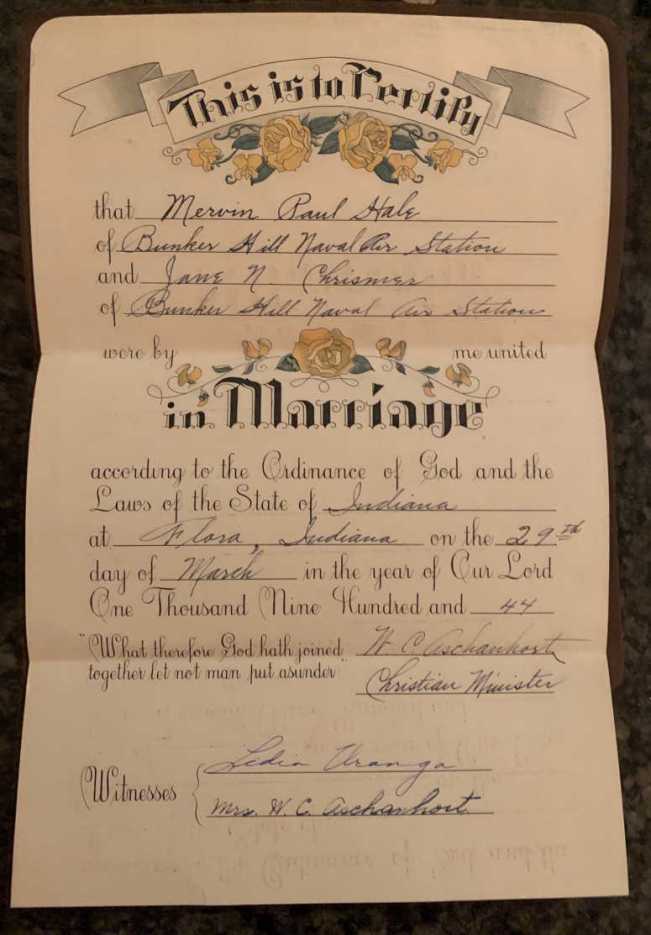 This is to Certify
that Mervin Paul Hale
of Bunker Hill Naval Air Station
and Jane N. Chrismer
of Bunker Hill Naval Air Station
were by me united
in Marriage
according to the Ordinance of God and the
Laws of the State of Indiana
at Flora, Indiana on the 29th
day of March in the year of Our Lord
One Thousand Nine Hundred and 44
"What therefore God hath joined W. C. Aschanhort
together let not man put asunder"
Christian Minister
Witnesses
Ledia Uranga
Mrs. W. C. Aschanhort